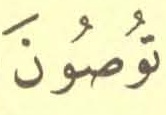 تُوصُونَ